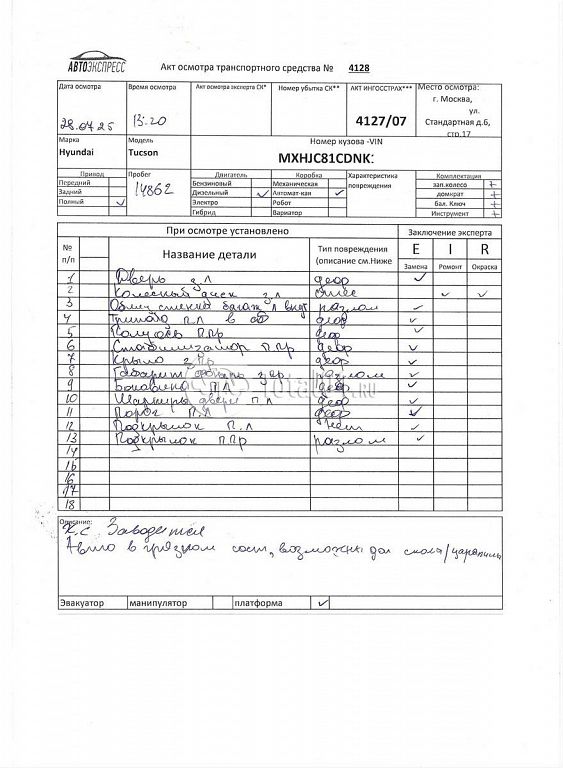 АВТОЭКСПРЕСС
Акт осмотра транспортного средства № 4128
Дата осмотра
28.07.25
Время осмотра
13:20
Акт осмотра эксперта СК*
Номер убытка СК**
АКТ ИНГОССТРАХ***
4127/07
Место осмотра:
г. Москва,
ул.
Стандартная д.6,
стр.17
Марка
Hyundai
Модель
Tucson
Номер кузова -VIN
MXHJC81CDNK:
Привод
Передний
Задний
Полный ✓
Пробег
14862
Двигатель
Бензиновый
Дизельный ✓
Электро
Гибрид
Коробка
Механическая
Автомат-кая ✓
Робот
Вариатор
Характеристика
повреждения
Комплектация
зап.колесо +
домкрат +
бал. Ключ +
Инструмент +
При осмотре установлено
Заключение эксперта
№
п/п
Название детали
Тип повреждения
(описание см.Ниже
E I R
Замена Ремонт Окраска
1 Дверь з л деф ✓
2 Колесный диск з л ✓ ✓
3 багаж л разлом ✓
4 п л в деф ✓
5 Полуось П.пр деф ✓
6 Стабилизатор п пр деф ✓
7 Крыло з пр деф ✓
8 Габарит фонарь з пр разлом ✓
9 Боковина П Л деф ✓
10 Шарниры двери п л деф ✓
11 Порог П.Л деф ✓
12 Подкрылок П.Л ✓
13 Подкрылок П.Пр разлом ✓
14
15
16
17
18
Total .RU
Описание:
К.с Заводится
Авто в грязном сост, возможны доп скола/царапины
Эвакуатор манипулятор платформа ✓